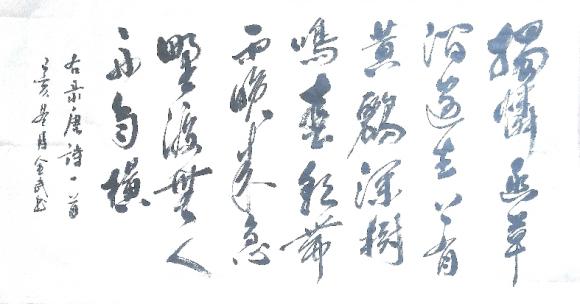 獨憐幽草
澗邊生上有
黃鸝深樹
鳴春潮帶
雨晚來急
野渡無人
舟自橫
右录唐詩一首
亥月武书